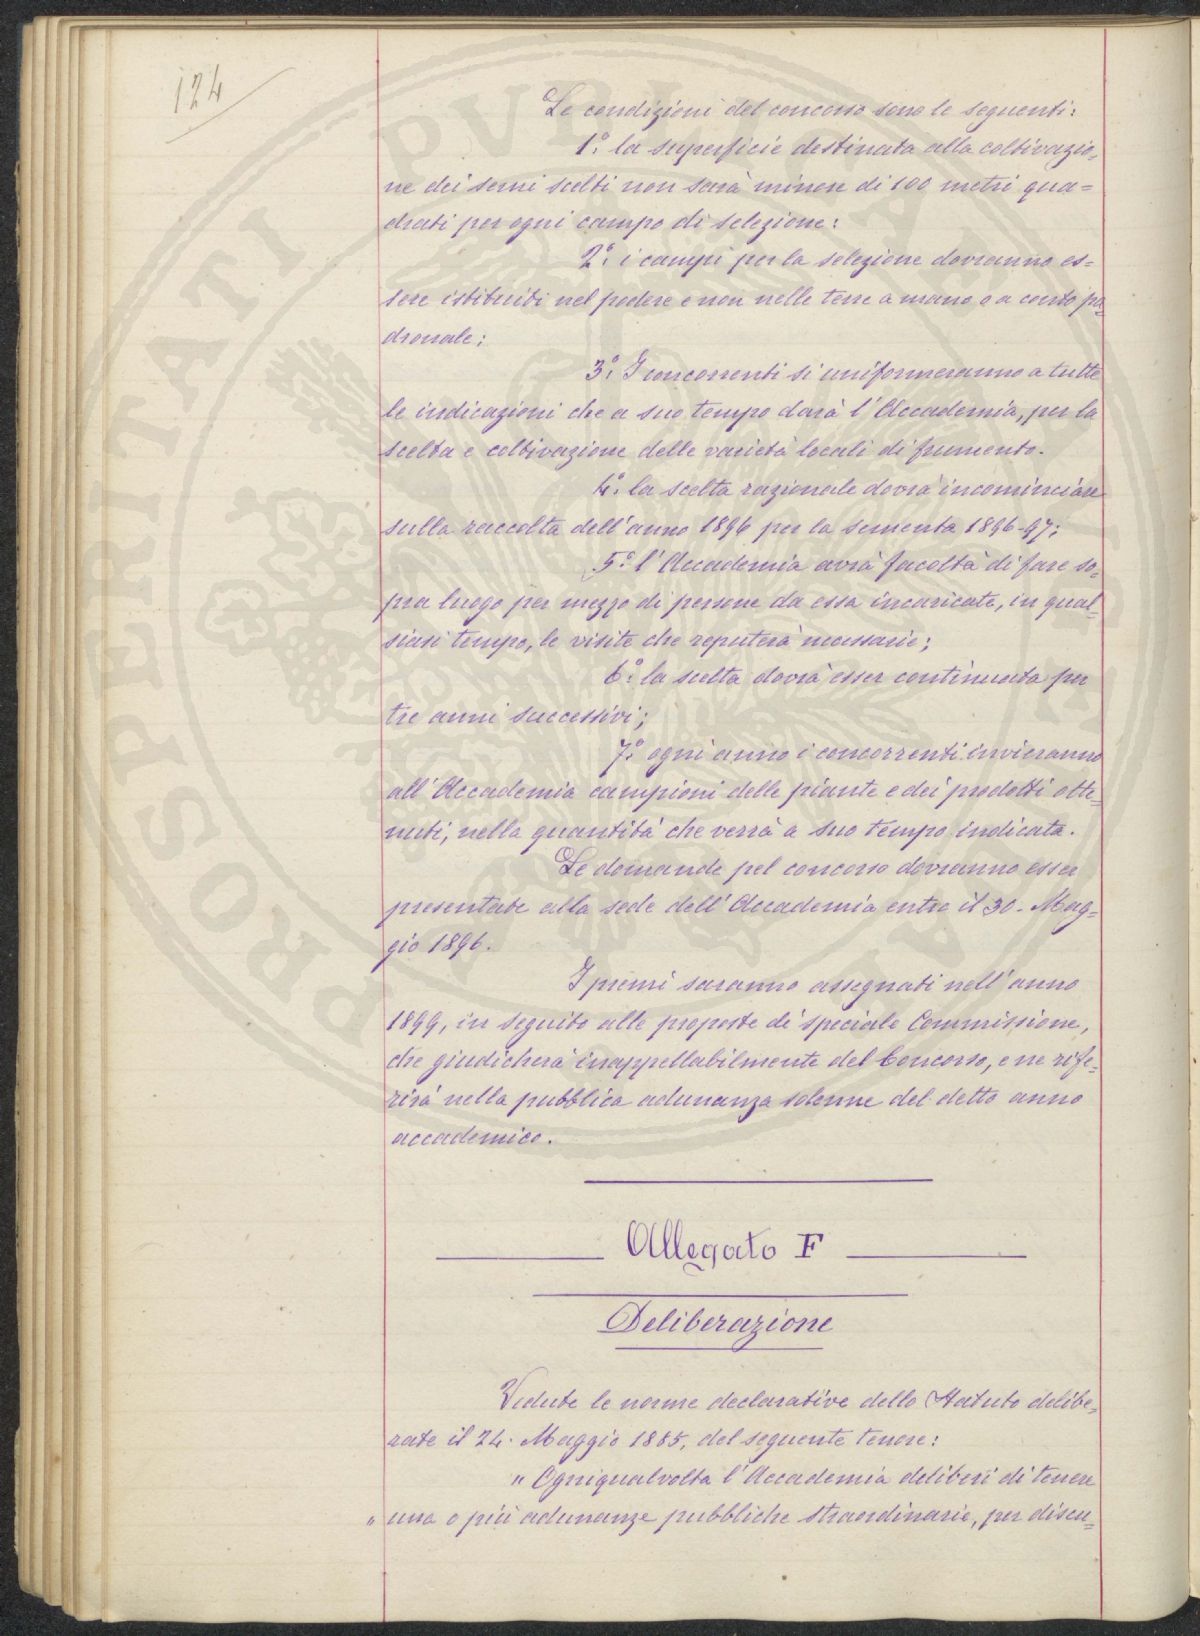 124
Le condizioni del concorso sono le seguenti:
1.° la superficie destinata alla coltivazio-
ne dei semi scelti non sarà minore di 100 metri qua=
drati per ogni campo di selezione:
2.° i campi per la selezione dovranno es=
sere istituiti nel podere e non nelle terre a mano o a conto pa-
dronale;
3.° I concorrenti si uniformeranno a tutte
le indicazioni che a suo tempo darà l'Accademia, per la
scelta e coltivazione delle varietà locali di frumento.
4.° la scelta razionale dovrà incominciare
sulla raccolta dell'anno 1896 per la sementa 1896-97;
5.° l'Accademia avrà facoltà di fare so-
pra luogo per mezzo di persone da essa incaricate, in qual-
siasi tempo, le visite che reputerà necessarie;
6.° la scelta dovrà esser continuata per
tre anni successivi;
7.° ogni anno i concorrenti invieranno
all'Accademia campioni delle piante e dei prodotti otte-
nuti, nella quantità che verrà a suo tempo indicata.
Le domande pel concorso dovranno esser
presentate alla sede dell'Accademia entro il 30. Mag=
gio 1896.
I premi saranno assegnati nell'anno
1899, in seguito alle proposte di speciale Commissione,
che giudicherà inappellabilmente del Concorso, e ne rife=
rirà nella pubblica adunanza solenne del detto anno
accademico.
Allegato F
Deliberazione
Vedute le norme declarative dello Statuto delibe-
rate il 24. Maggio 1885, del seguente tenore:
" Ogniqualvolta l'Accademia deliberi di tenere
" una o più adunanze pubbliche straordinarie, per discu=
PROSPERITATI PVBLICAE